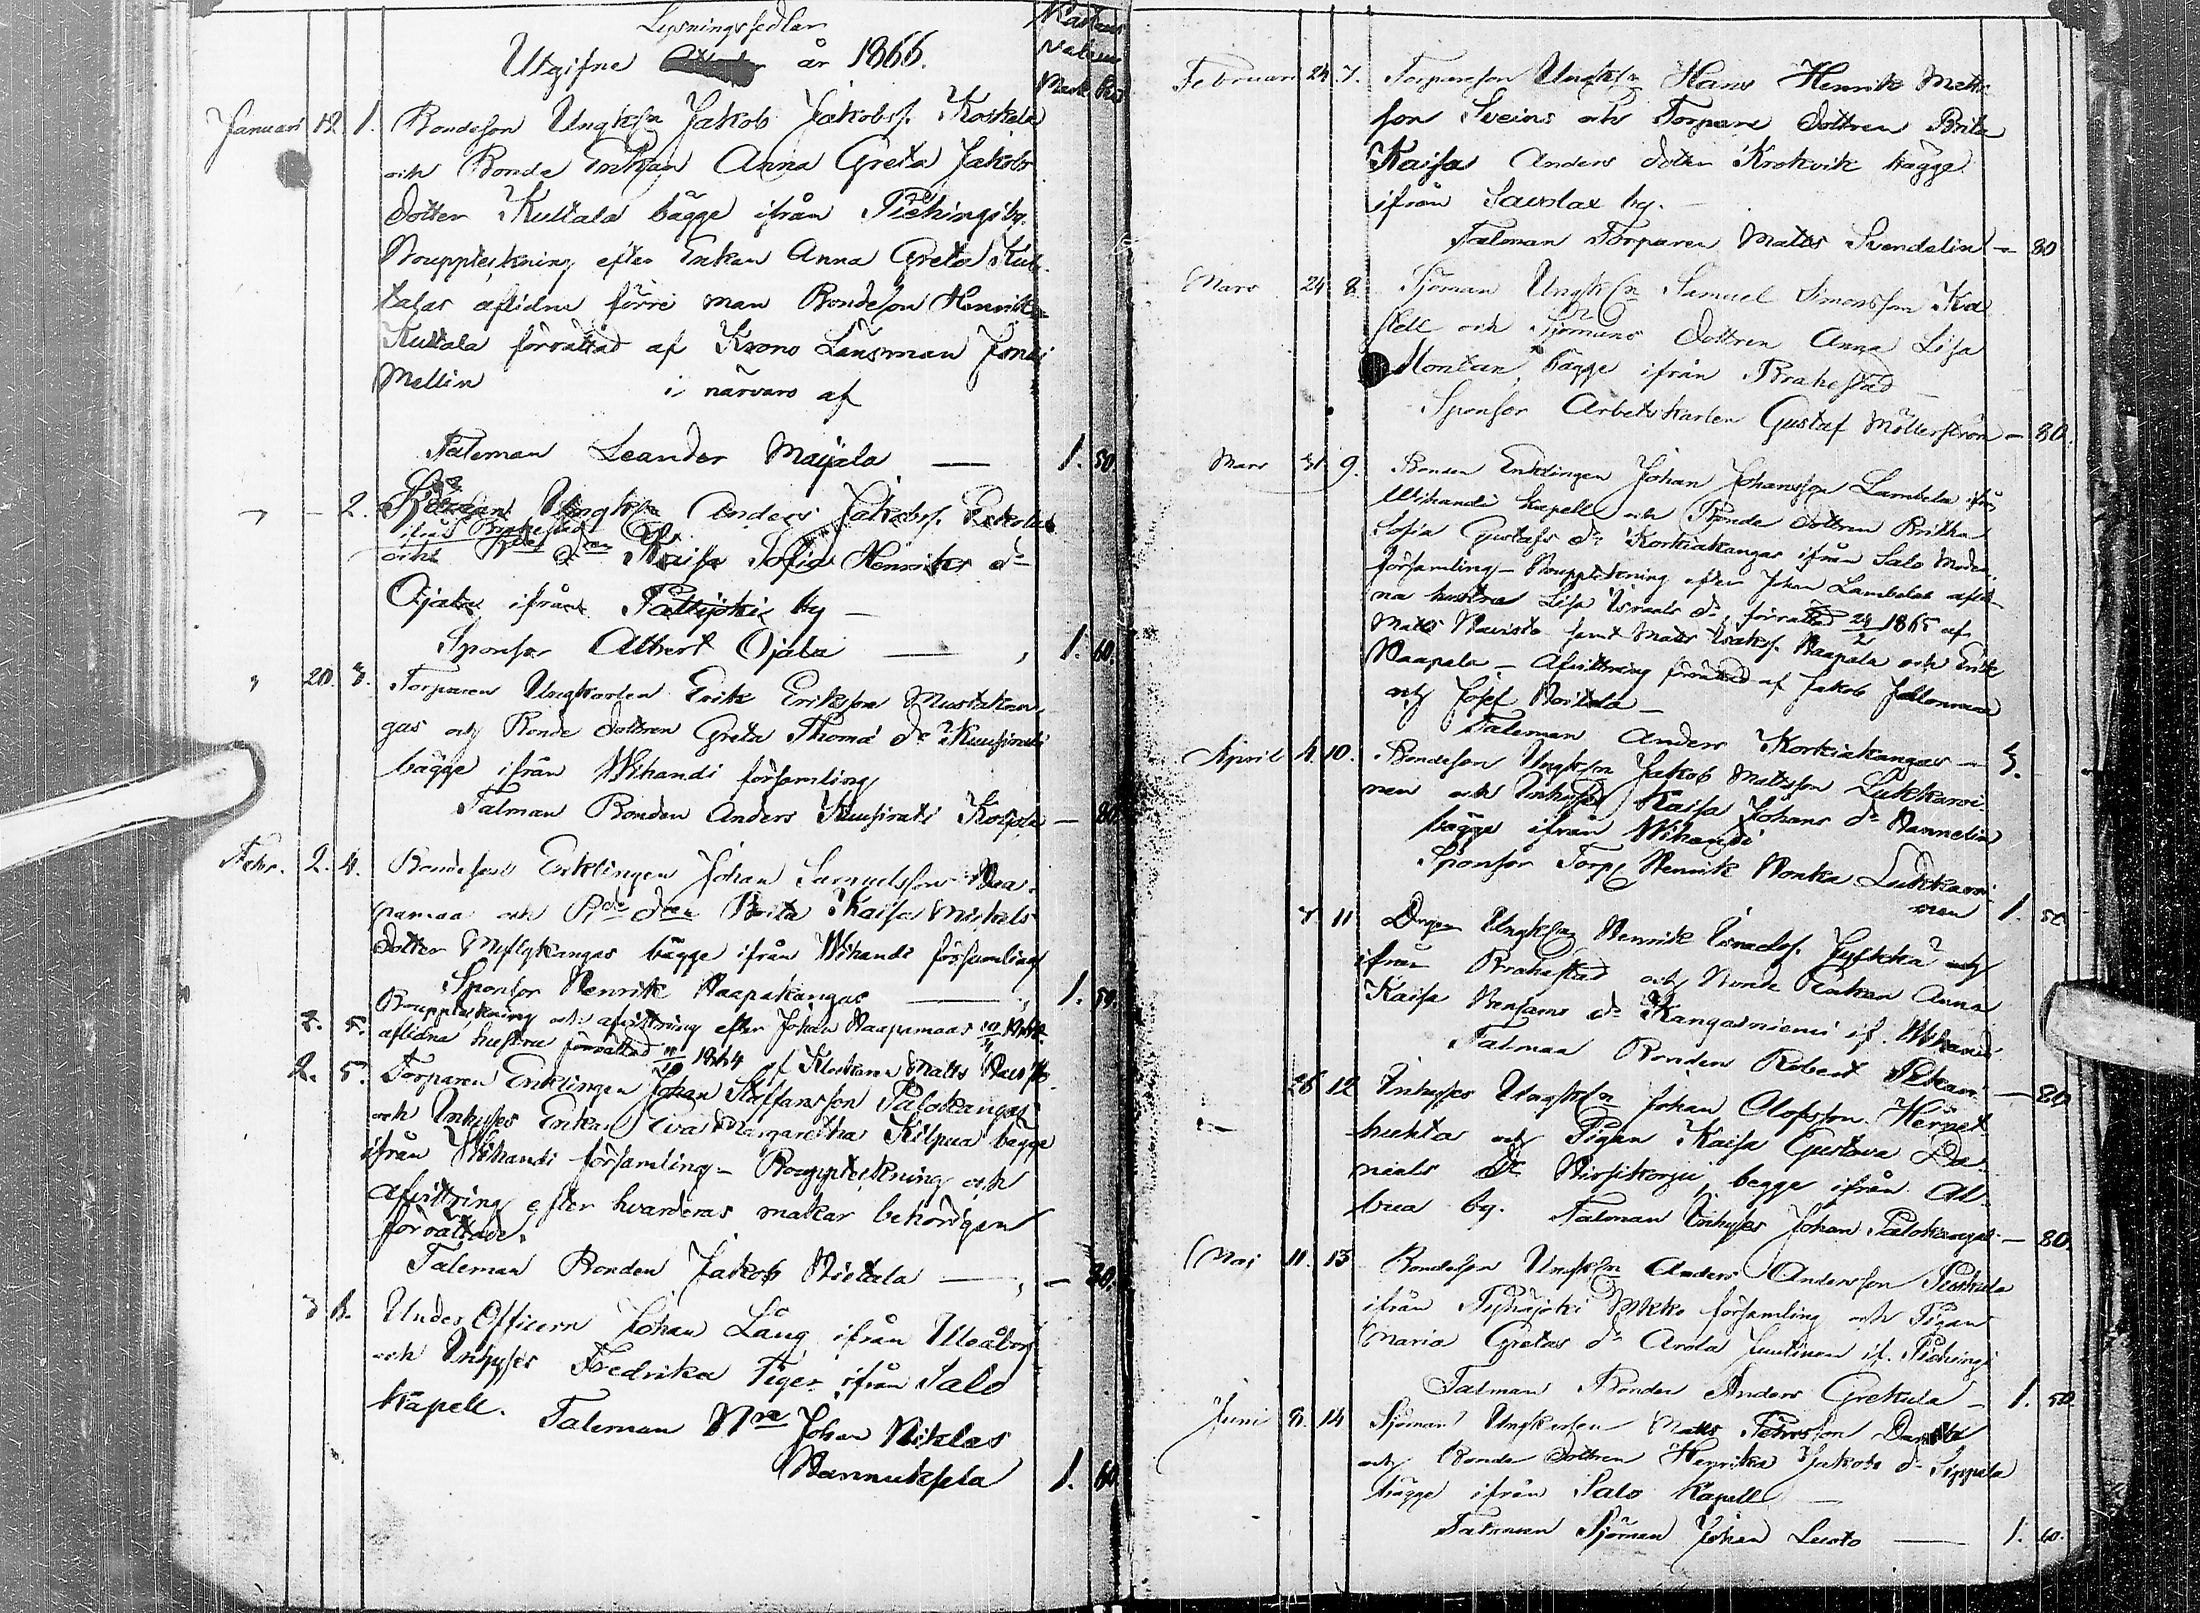 Lysningssedlar
Utgifne år 1866.
Mark
Januari 12. 1. Bondeson Ungkn Jakob Jakobss. Koskela
och Bonde Enkan Anna Greta Jakobs
dotter Kultala bägge ifrån Piehingi by.
Bouppteckning efter Enkan Anna Greta Kul-
talas aflidne förre man Bondeson Henrik
Kultala förrättad af Krono Länsman Jonas
Mellin i närvaro af
Taleman Leander Maijala — 1. 50.
" — 2. Sjöman Ungkn Anders Jakobss.
ifrån Brahestad
och Kajsa Sofia Henriks dr
Ojala ifrån Pattijoki by —
Sponsor Albert Ojala — 1. 60.
" 20. 3. Torparen Ungkarlen Erik Eriksson Mustakan-
gas och Bonde dottren Greta Thoma dr Kuusirati
bägge ifrån Wihandi församling
Talman Bonden Anders Kuusirati Korpela — 80.
Febr. 2. 4. Bondeson Enklingen Johan Samuelsson Haa-
pamaa och Brita Kajsa Mickels
dotter Myllykangas bägge ifrån Wihandi församling
Sponsor Henrik Haapakangas — 1. 50.
Bouppteckning och afvittring efter Johan Haapamaas
aflidna hustru förrättad 1864 af Klockaren Matts
2. 5. Torparen Enklingen Johan Staffansson Palokangas
och Inhyses Enkan Eva Margaretha Kilpua bägge
ifrån Wihandi församling — Bouppteckning och
afvittring efter hvarderas makar behörigen
förrättade.
Taleman Bonden Jakob Hietala — 80.
3 6. Under Officern Johan Lång ifrån Uleåborg
och Inhyses Fredrika Tiger ifrån Salo
Kapell. Taleman Johan Niklas
Hannuksela 1. 60.
Februari 24 7. Torpareson Ungkn Hans Henrik Matts-
son Sveins och Torpare dottren Brita
Kaisa Anders dotter Krokvik bägge
ifrån Savolax by. —
Taleman Torparen Matts Svendelin — 80
Mars 24 8. Sjöman Ungkn Samuel Simonsson Ka
stell och Sjömans dottren Anna Lisa
Montin, bägge ifrån Brahestad —
Sponsor Arbetskarlen Gustaf Möllerström — 80.
Mars 31 9. Bonden Enklingen Johan Johansson Lambela ifrån
Wihandi Kapell och Bonde dottren Britha
Sofia Gustafs dr Korkiakangas ifrån Salo Moder-
församling — Bouppteckning efter Johan Lambelas aflid-
na hustru Lisa Israels dr, förrättad 24/2 1865 af
Matts Ravisto samt Matts Isakss. Haapala och Erik
Haapala — Afvittring förrättad af Jakob
och Josef Hoitola —
Taleman Anders Korkiakangas — 3.
April 4. 10. Bondeson Ungkn Jakob Mattsson Lukkaroi-
nen och Inhyses Kaisa Johans dr Hannelin
bägge ifrån Wihandi
Sponsor Torp. Henrik Honka Lukkaroi-
nen 1. 50
7. 11 Drgn Ungkn Henrik Israelss. Jylkkä
ifrån Brahestad och Bonde Enkan Anna
Kaisa Benjams dr Kangasniemi if. Wihandi
Talman Bonden Robert Pekari — 80
26 12 Inhyses Ungkn Johan Olofsson Hernet-
huhta och Pigan Kaisa Gustava Da-
niels dr Hirsikorpi, begge ifrån Al-
bua by. Talman Inhyses Johan Palokangas — 80.
Maj 11. 13 Bondeson Ungkn Anders Andersson Peskula
ifrån församling och Pigan
Maria Gretas dr Arola Juntinen if. Piehingi
Talman Bonden Anders Grekula — 1. 50.
Juni 8. 14 Sjöman Ungkarlen Matts Petersson
och Bonde dottren Henrika Jakobs dr Sippala
bägge ifrån Salo Kapell —
Talman Sjöman Johan Lusto — 1. 60.